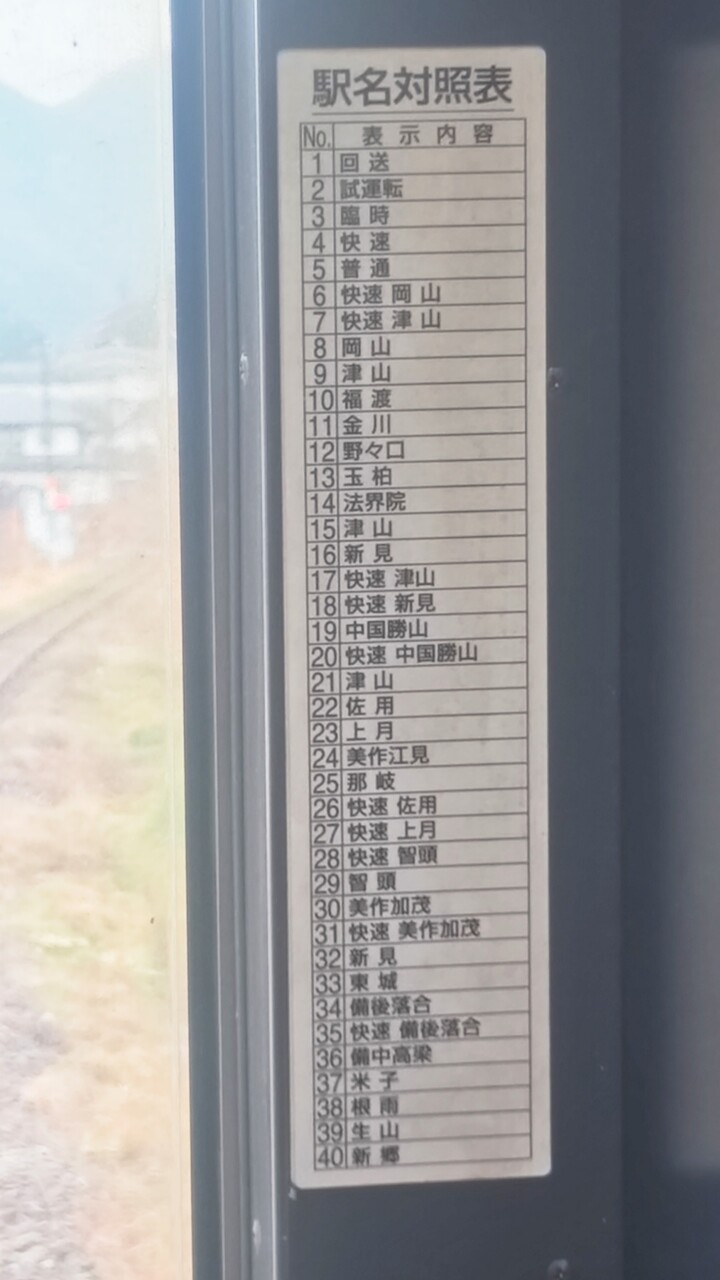 駅名対照表
No. 表示内容
1 回送
2 試運転
3 臨時
4 快速
5 普通
6 快速 岡山
7 快速 津山
8 岡山
9 津山
10 福渡
11 金川
12 野々口
13 玉柏
14 法界院
15 津山
16 新見
17 快速 津山
18 快速 新見
19 中国勝山
20 快速 中国勝山
21 津山
22 佐用
23 上月
24 美作江見
25 那岐
26 快速 佐用
27 快速 上月
28 快速 智頭
29 智頭
30 美作加茂
31 快速 美作加茂
32 新見
33 東城
34 備後落合
35 快速 備後落合
36 備中高梁
37 米子
38 根雨
39 生山
40 新郷